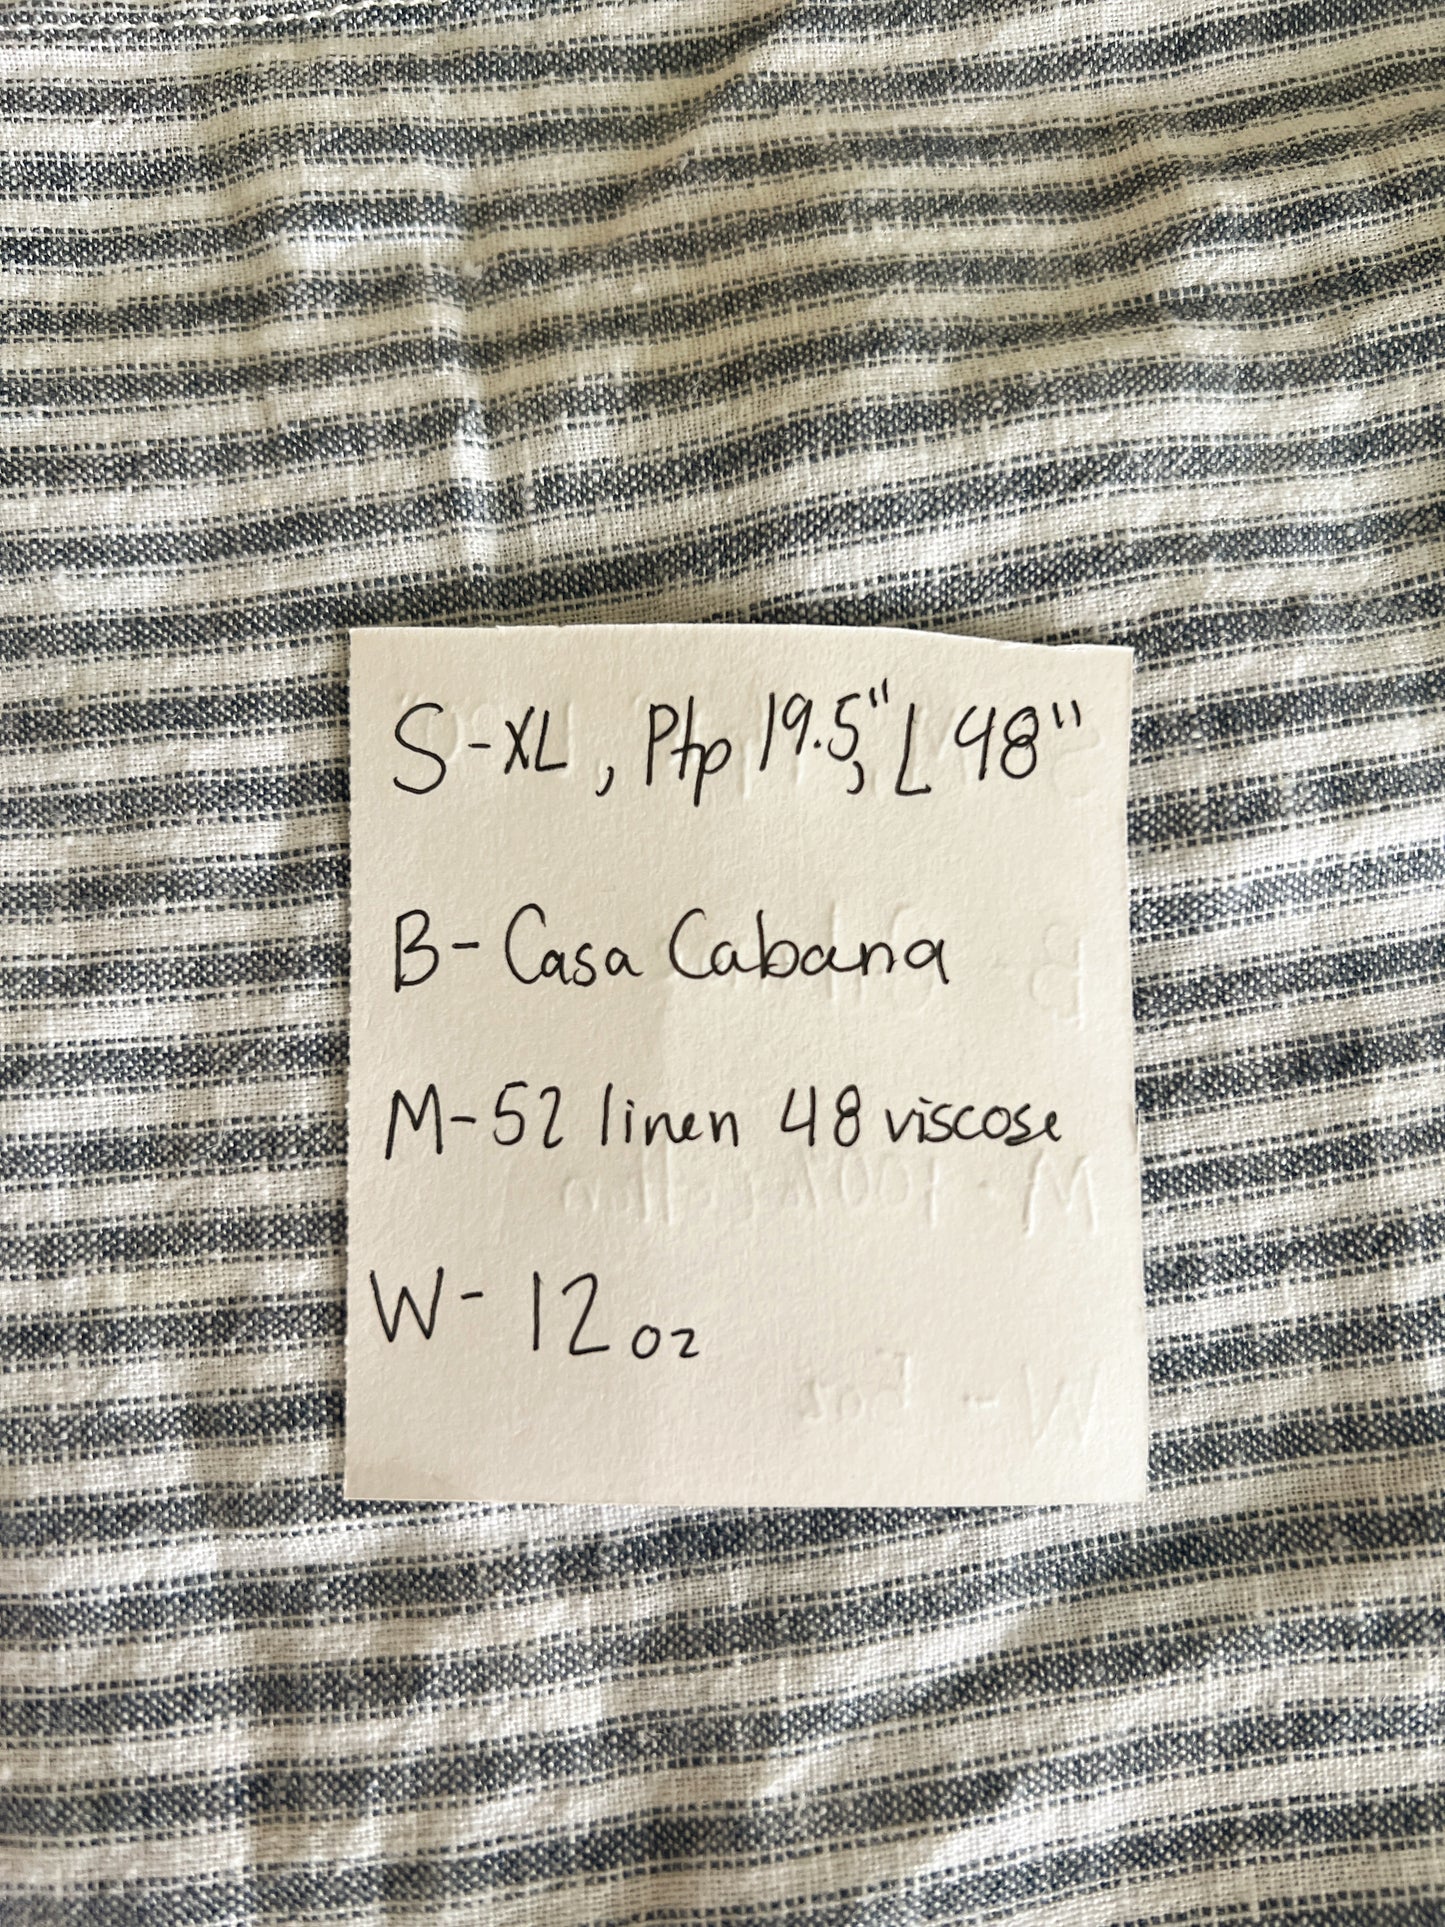 S-XL, Ptp 19.5", L 48"
B- Casa Cabana
M-52 linen 48 viscose
W- 12oz